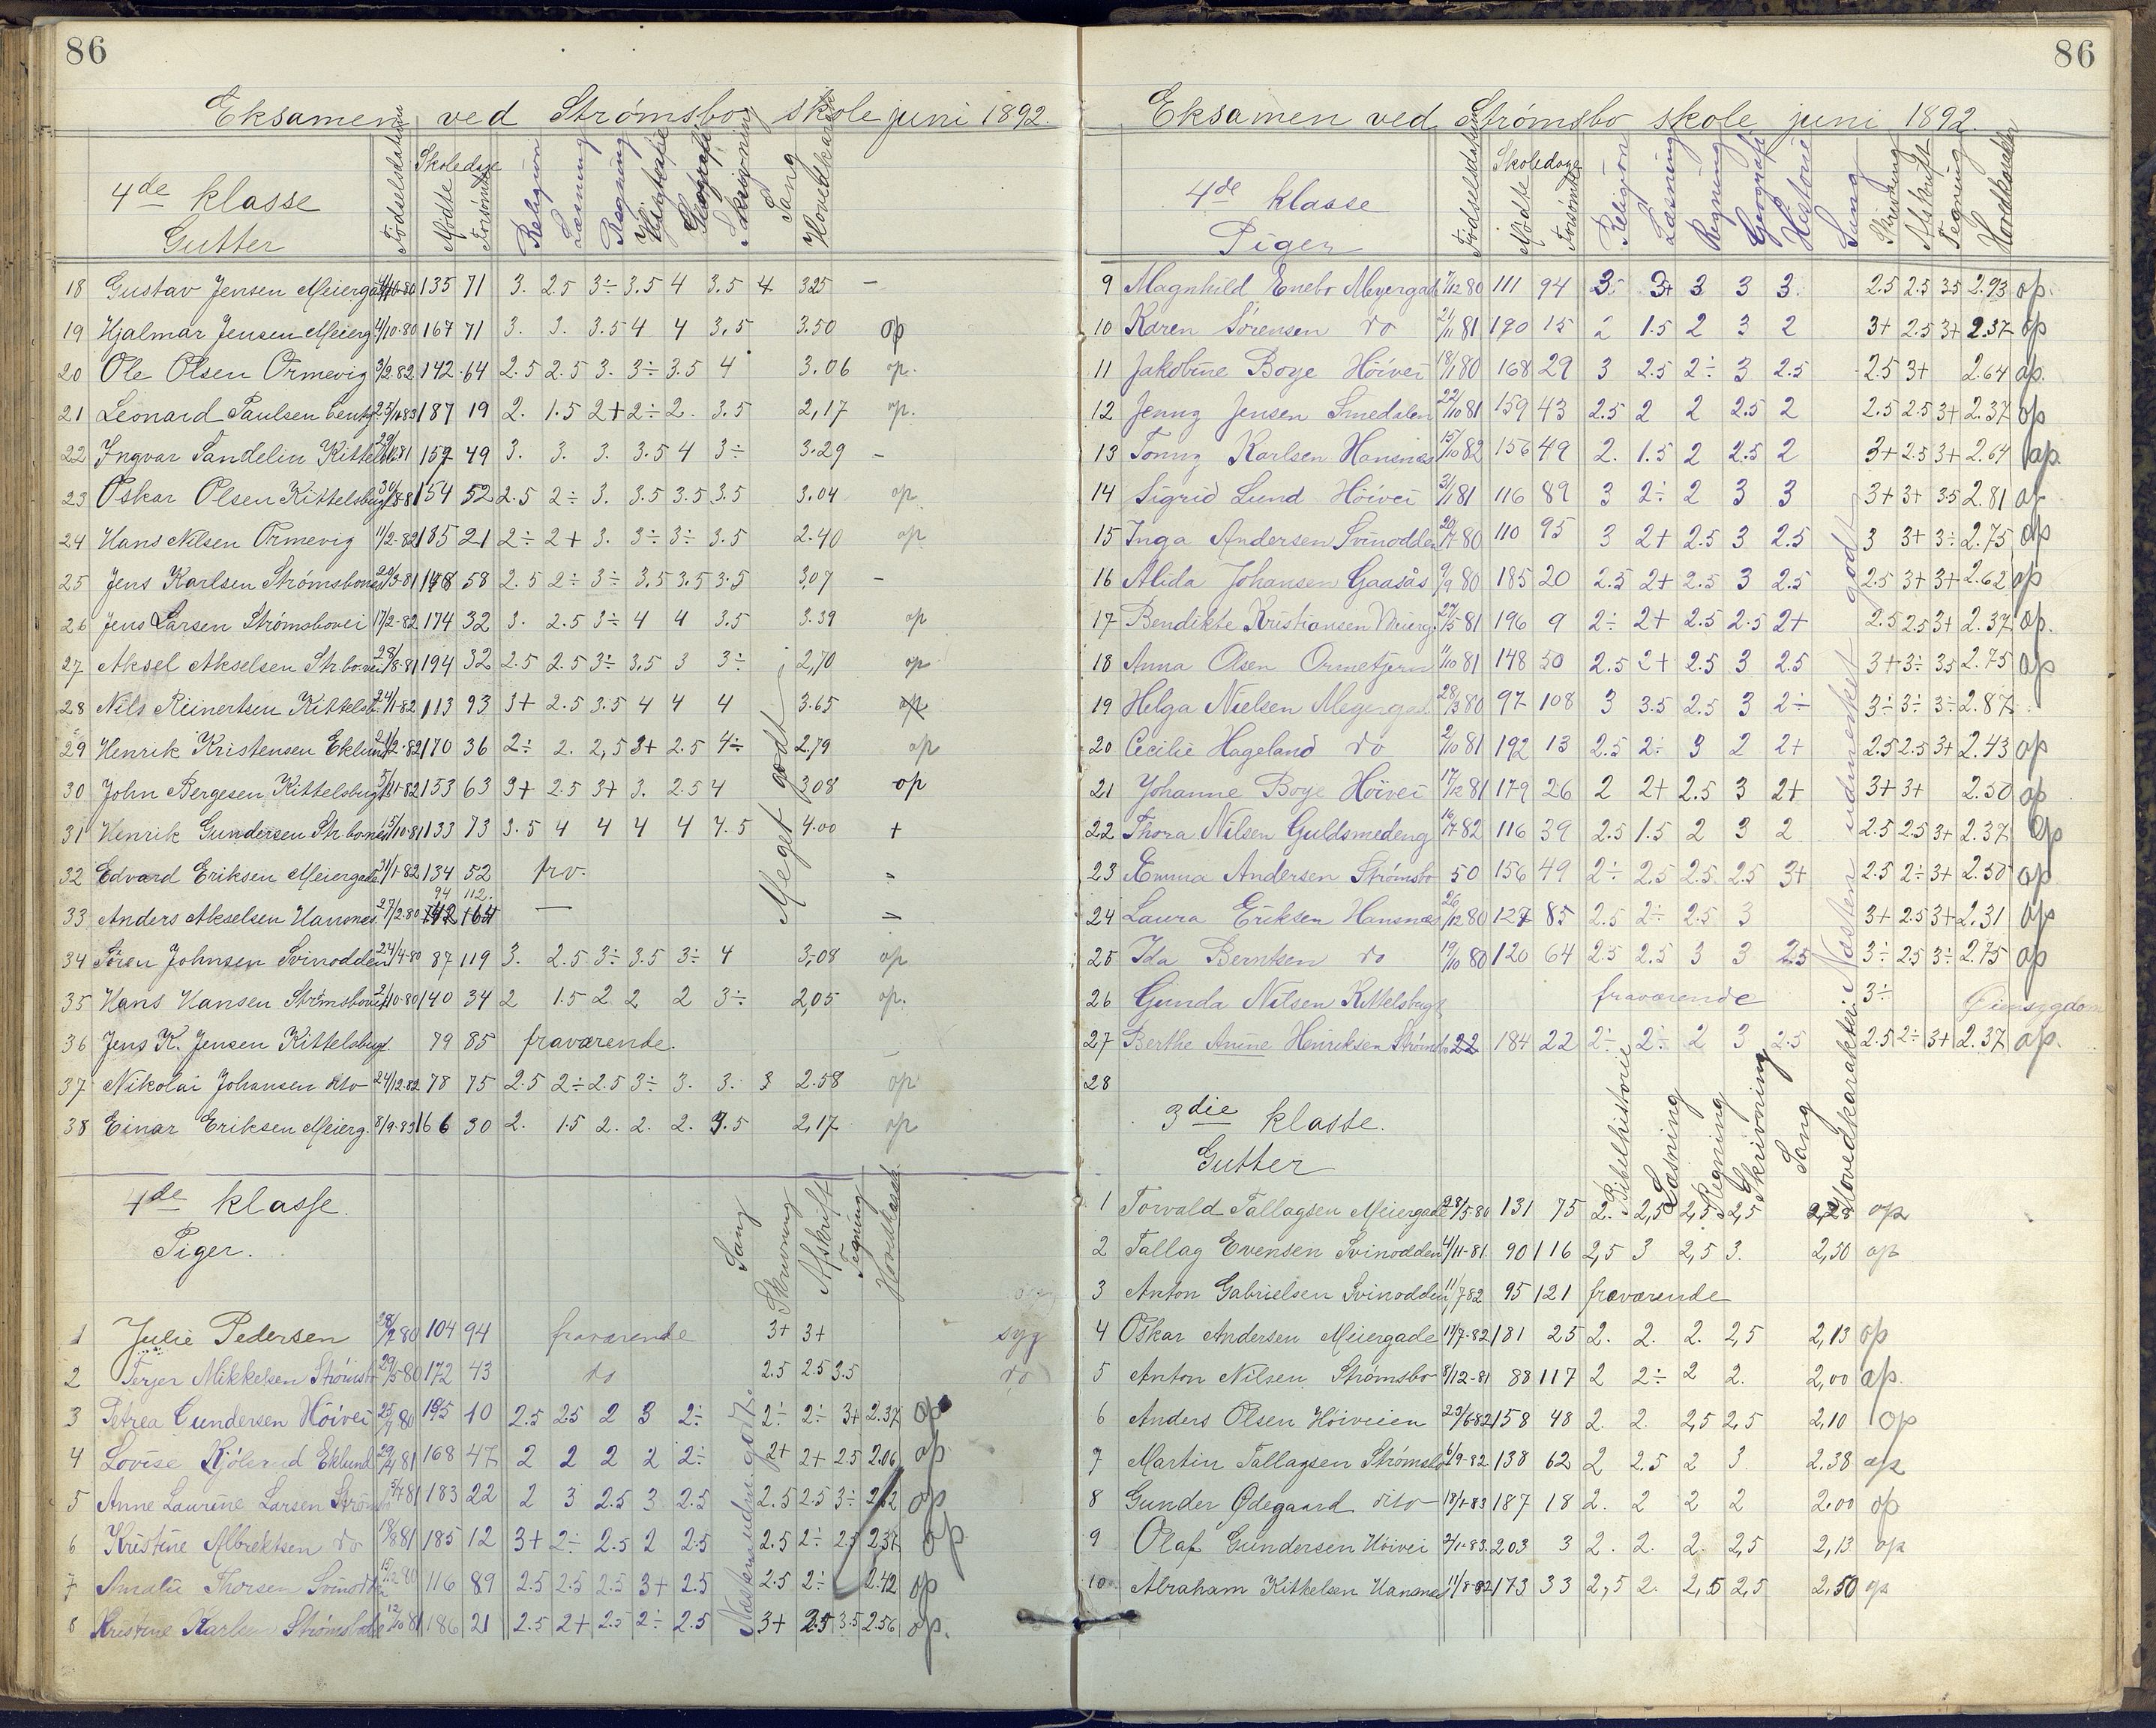 86
Eksamen ved Strømsbo skole juni 1892.
4de klasse
Gutter
Fødselsdatum Skoledage Mødte Forsømte Religion Læsning Regning Geografi Skrivning Sang Hovedkarakt
18 Gustav Jensen Meiergad 135 71 3. 2.5 3÷ 3.5 4 3.5 4 325 –
19 Hjalmar Jensen Meierg 4/10-80 167 71 3. 3. 3.5 4 4 3.5 3.50 op
20 Ole Olsen Ormevig 3/2.82 142 64 2.5 2.5 3. 3÷ 3.5 4 3.06 op.
21 Leonard Paulsen 187 19 2. 1.5 2+ 2÷ 2. 3.5 2,17 op.
22 Ingvar Sandelin Kittelsb 157 49 3. 3. 3. 3.5 4 3÷ 3.29 –
23 Oskar Olsen Kittelsbug 154 52 2.5 2÷ 3. 3.5 3.5 3.5 3.04 op.
24 Hans Nilsen Ormevig 11/2-82 185 21 2÷ 2+ 3. 3÷ 3÷ 3.5 2.40 op
25 Jens Karlsen Strømsbo 148 58 2.5 2÷ 3÷ 3.5 3.5 3.5 3,07 –
26 Jens Larsen Strømsbovei 17/2-82 174 32 3. 2.5 3÷ 4 4 3.5 3.39 op
27 Aksel Akselsen Str.bovei 28/8-81 194 32 2.5 2.5 3÷ 3.5 3 3÷ 2,70 op
28 Nils Reinertsen Kittelsb 24/1-82 113 93 3+ 2.5 3.5 4 4 4 3.65 op
29 Henrik Kristensen Eklund 170 36 2÷ 2. 2,5 3+ 2.5 4÷ 2.79 op
30 John Bergesen Kittelsbugt 153 63 3+ 2.5 3+ 3. 2.5 4 308 op
31 Henrik Gundersen Str.bo 133 73 3.5 4 4 4 4 4.5 4.00 +
32 Edvard Eriksen Meiergade 31/1-82 134 52 frv. "
94 112.
33 Anders Akselsen Hansnes 27/2-80 142 64 — "
34 Søren Johnsen Svinodden 24/4-80 87 119 3. 2.5 3÷ 3.5 3÷ 4 3,08 op
35 Hans Hansen Strømsbovei 140 34 2 1.5 2 2 2 3÷ 2,05 op.
36 Jens K. Jensen Kittelsbugt 79 85 fraværende.
37 Nikolai Johansen dto 24/12.82 78 75 2.5 2÷ 2.5 3÷ 3. 3. 3 2.58 op
38 Einar Eriksen Meierg. 8/9-83 166 30 2. 1.5 2. 2. 2. 3.5 2,17 op
Meget godt
4de klasse.
Piger.
Sang Skrivning Afskrift Tegning Hovedkarakt
1 Julie Pedersen 104 94 fraværende 3+ 3+ syg
2 Terjer Mikkelsen Strømsb 29/5 80 172 43 do 2.5 2.5 3.5 do
3 Petrea Gundersen Høivei 195 10 2.5 2.5 2 3 2÷ 2÷ 2÷ 3+ 2.37 op
4 Lovise Eklund 168 47 2 2 2 2 2÷ 2+ 2+ 2.5 2.06 op
5 Anne Laurine Larsen Strømsb 183 22 2 3 2.5 3 2.5 2.5 2.5 3÷ op
6 Kristine Albrektsen do 185 12 3+ 2÷ 2.5 2 2.5 2.5 2÷ 2.5 2.37 op
7 Amalie Thorsen Svinodden 116 89 2.5 2.5 2.5 3+ 2.5 2.5 2÷ 2.42 op
8 Kristine Karlsen Strømsbo 12/10 81 186 21 2.5 2+ 2.5 2÷ 2.5 3+ 2.5 3.5 2.56 op.
Næsten udm. godt.
86
Eksamen ved Strømsbo skole juni 1892.
4de klasse
Piger
Fødselsdatum Skoledage Mødte Forsømte Religion Læsning Regning Geografi Historie Sang Skrivning Afskrift Tegning Hovedkarakter
9 Magnhild Enebo Meyergad 7/12 80 111 94 3 3+ 3 3 3. 2.5 2.5 3.5 2.93 op.
10 Karen Sørensen do 21/11 81 190 15 2 1.5 2 3 2 3+ 2.5 3+ 2.37 op
11 Jakobine Boye Höivei 18/1 80 168 29 3 2.5 2÷ 3 2.5 2.5 3+ 2.64 op.
12 Jenny Jensen Smedalen 22/10 81 159 43 2.5 2 2 2.5 2 2.5 2.5 3+ 2.37 op
13 Tonny Karlsen Hansnæs 15/10 82 156 49 2. 1.5 2 2.5 2 3+ 2.5 3+ 2.64 op.
14 Sigrid Lund Höivei 31/1 81 116 89 3 2÷ 2 3 3 3+ 3+ 3.5 2.81 op
15 Inga Andersen Svinodden 110 95 3 2+ 2.5 3 2.5 3 3+ 3÷ 2.75 op
16 Alida Johansen Gaasås 9/9 80 185 20 2.5 2+ 2.5 3 2.5 2.5 3+ 3+ 2.62 op
17 Bendikte Kristiansen Meierg. 27/5 81 196 9 2÷ 2+ 2.5 2.5 2+ 2.5 2.5 3+ 2.37 op.
18 Anna Olsen Ormetjern 11/10 81 148 50 2.5 2+ 2.5 3 2.5 3+ 3÷ 3.5 2.75 op
19 Helga Nielsen Meyergad 28/3 80 97 108 3 3.5 2.5 3 2÷ 3÷ 3÷ 3÷ 2.87
20 Cecilie Hageland do 2/10 81 192 13 2.5 2÷ 3 2 2+ 2.5 2.5 3+ 2.43 op
21 Johanne Boye Höivei 17/12 81 179 26 2 2+ 2.5 3 2+ 3+ 3+ 2.50 op
22 Thora Nilsen Guldsmedeng 82 116 39 2.5 1.5 2 3 2 2.5 2.5 3+ 2.37 op
23 Emma Andersen Strømsbo 50 156 49 2÷ 2.5 2.5 2.5 3+ 2.5 2÷ 3+ 2.50 op
24 Laura Eriksen Hansnæs 26/12 80 127 85 2.5 2÷ 2.5 3 3+ 2.5 3+ 2.31 op
25 Ida Berntsen do 19/10 80 120 64 2.5 2.5 3 3 2.5 3÷ 2.5 3÷ 2.75 op
26 Gunda Nilsen Kittelsbugt fraværende 3÷ Øiensygdom
27 Berthe Anine Henriksen Strømsbo 22 184 22 2÷ 2÷ 2 3 2.5 2.5 2÷ 3+ 2.37 op.
28
Hovedkarakter: Næsten udmerket godt
3die klasse.
Gutter
Bibelhistorie Læsning Regning Skrivning Sang Hovedkarakter
1 Torvald Tallagsen Meiergade 28/5-80 131 75 2. 2,5 2,5 2,5 2,28 op
2 Tallag Evensen Svinodden 4/11-81. 90 116 2,5 3 2,5 3. 2,50 op
3 Anton Gabrielsen Svinodden 11/7-82 95 121 fraværende
4 Oskar Andersen Meiergade 181 25 2. 2. 2. 2,5 2,13 op
5 Anton Nilsen Strømsbo 8/12-81 88 117 2 2÷ 2 2. 2,00 op.
6 Anders Olsen Höiveien 23/6-82 158 48 2. 2. 2,5 2,5 2,10 op
7 Martin Tallagsen Strømsbo 6/9-82 138 62 2 2.5 2 3 2.38 op
8 Gunder Ødegaard dito 18/1-83 187 18 2. 2 2 2 2.00 op
9 Olaf Gundersen Höivei 203 3 2. 2. 2. 2,5 2,13 op
10 Abraham Kittelsen Hansnæs 11/8-82 173 33 2,5 2. 2,5 2,5 2,50 op